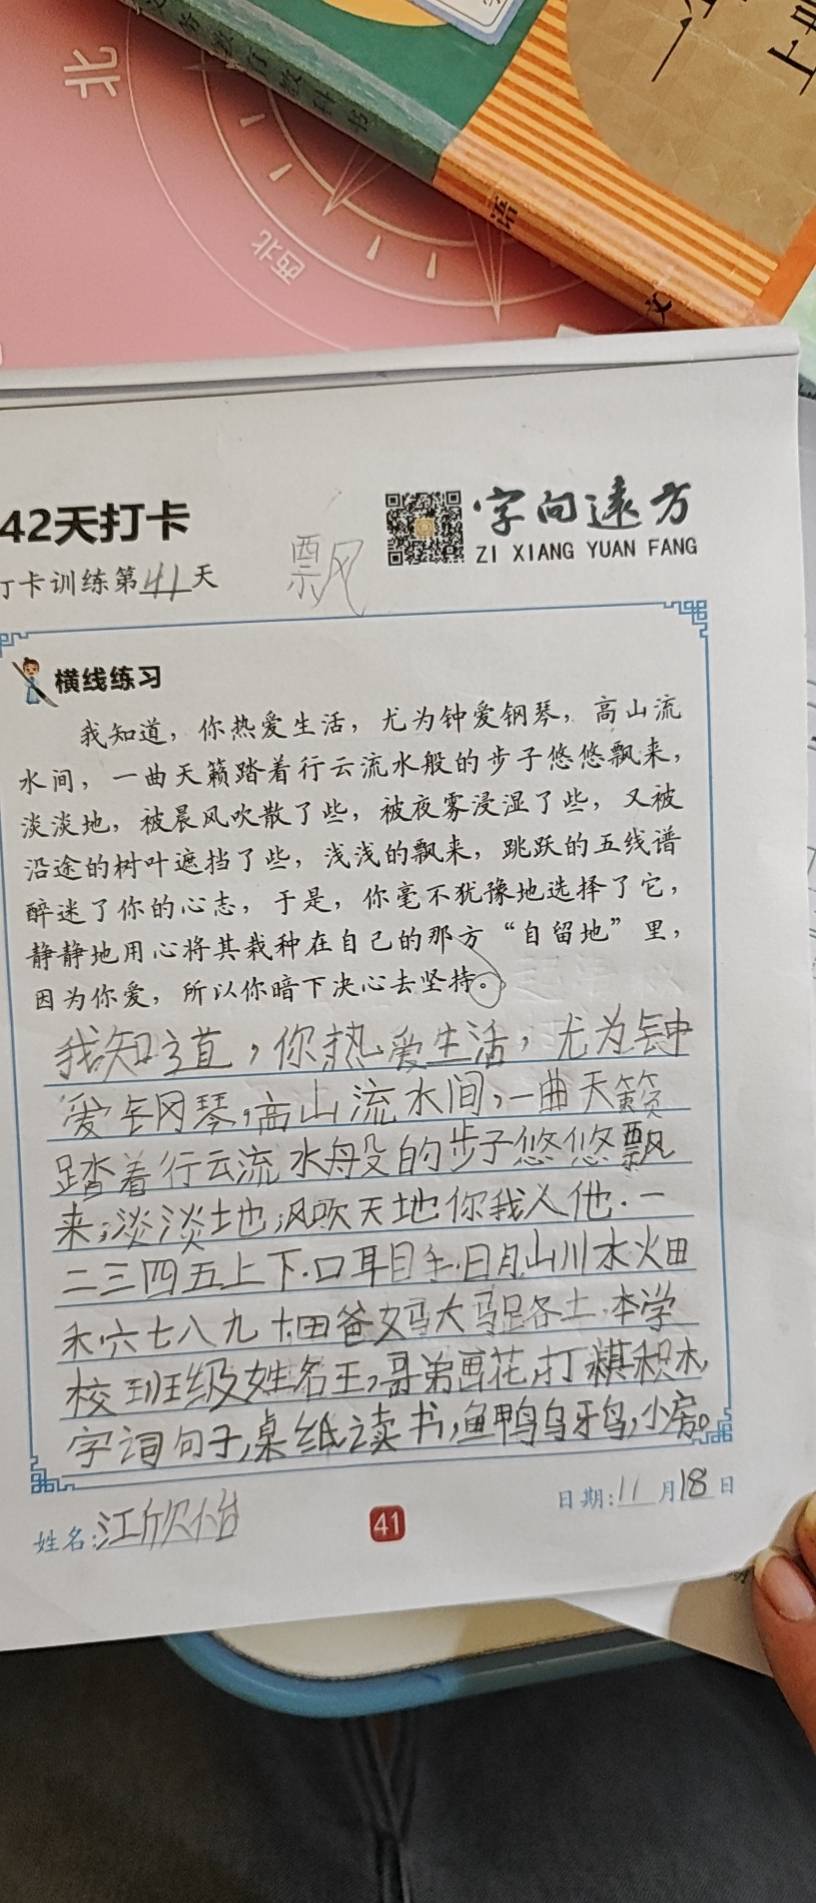 一年
上册
北
西北
语
文
42天打卡
字向远方
ZI XIANG YUAN FANG
打卡训练第41天
飘
横线练习
我知道，你热爱生活，尤为钟爱钢琴，高山流
水间，一曲天籁踏着行云流水般的步子悠悠飘来，
淡淡地，被晨风吹散了些，被夜雾浸湿了些，又被
沿途的树叶遮挡了些，浅浅的飘来，跳跃的五线谱
醉迷了你的心志，于是，你毫不犹豫地选择了它，
静静地用心将其栽种在自己的那方“自留地”里，
因为你爱，所以你暗下决心去坚持。
我知道，你热爱生活，尤为钟
爱钢琴，高山流水间，一曲天籁
踏着行云流水般的步子悠悠飘
来，淡淡地，风吹天地你我人他.一
二三四五上下.口耳目手.日月山川水火田
禾.六七八九十.田爸妈大马路各土.本学
校班级姓名王，哥弟画花，打棋积木，
字词句子，桌纸读书，鱼鸭乌牙鸟，小房。
姓名:江欣怡
41
日期:11月18日